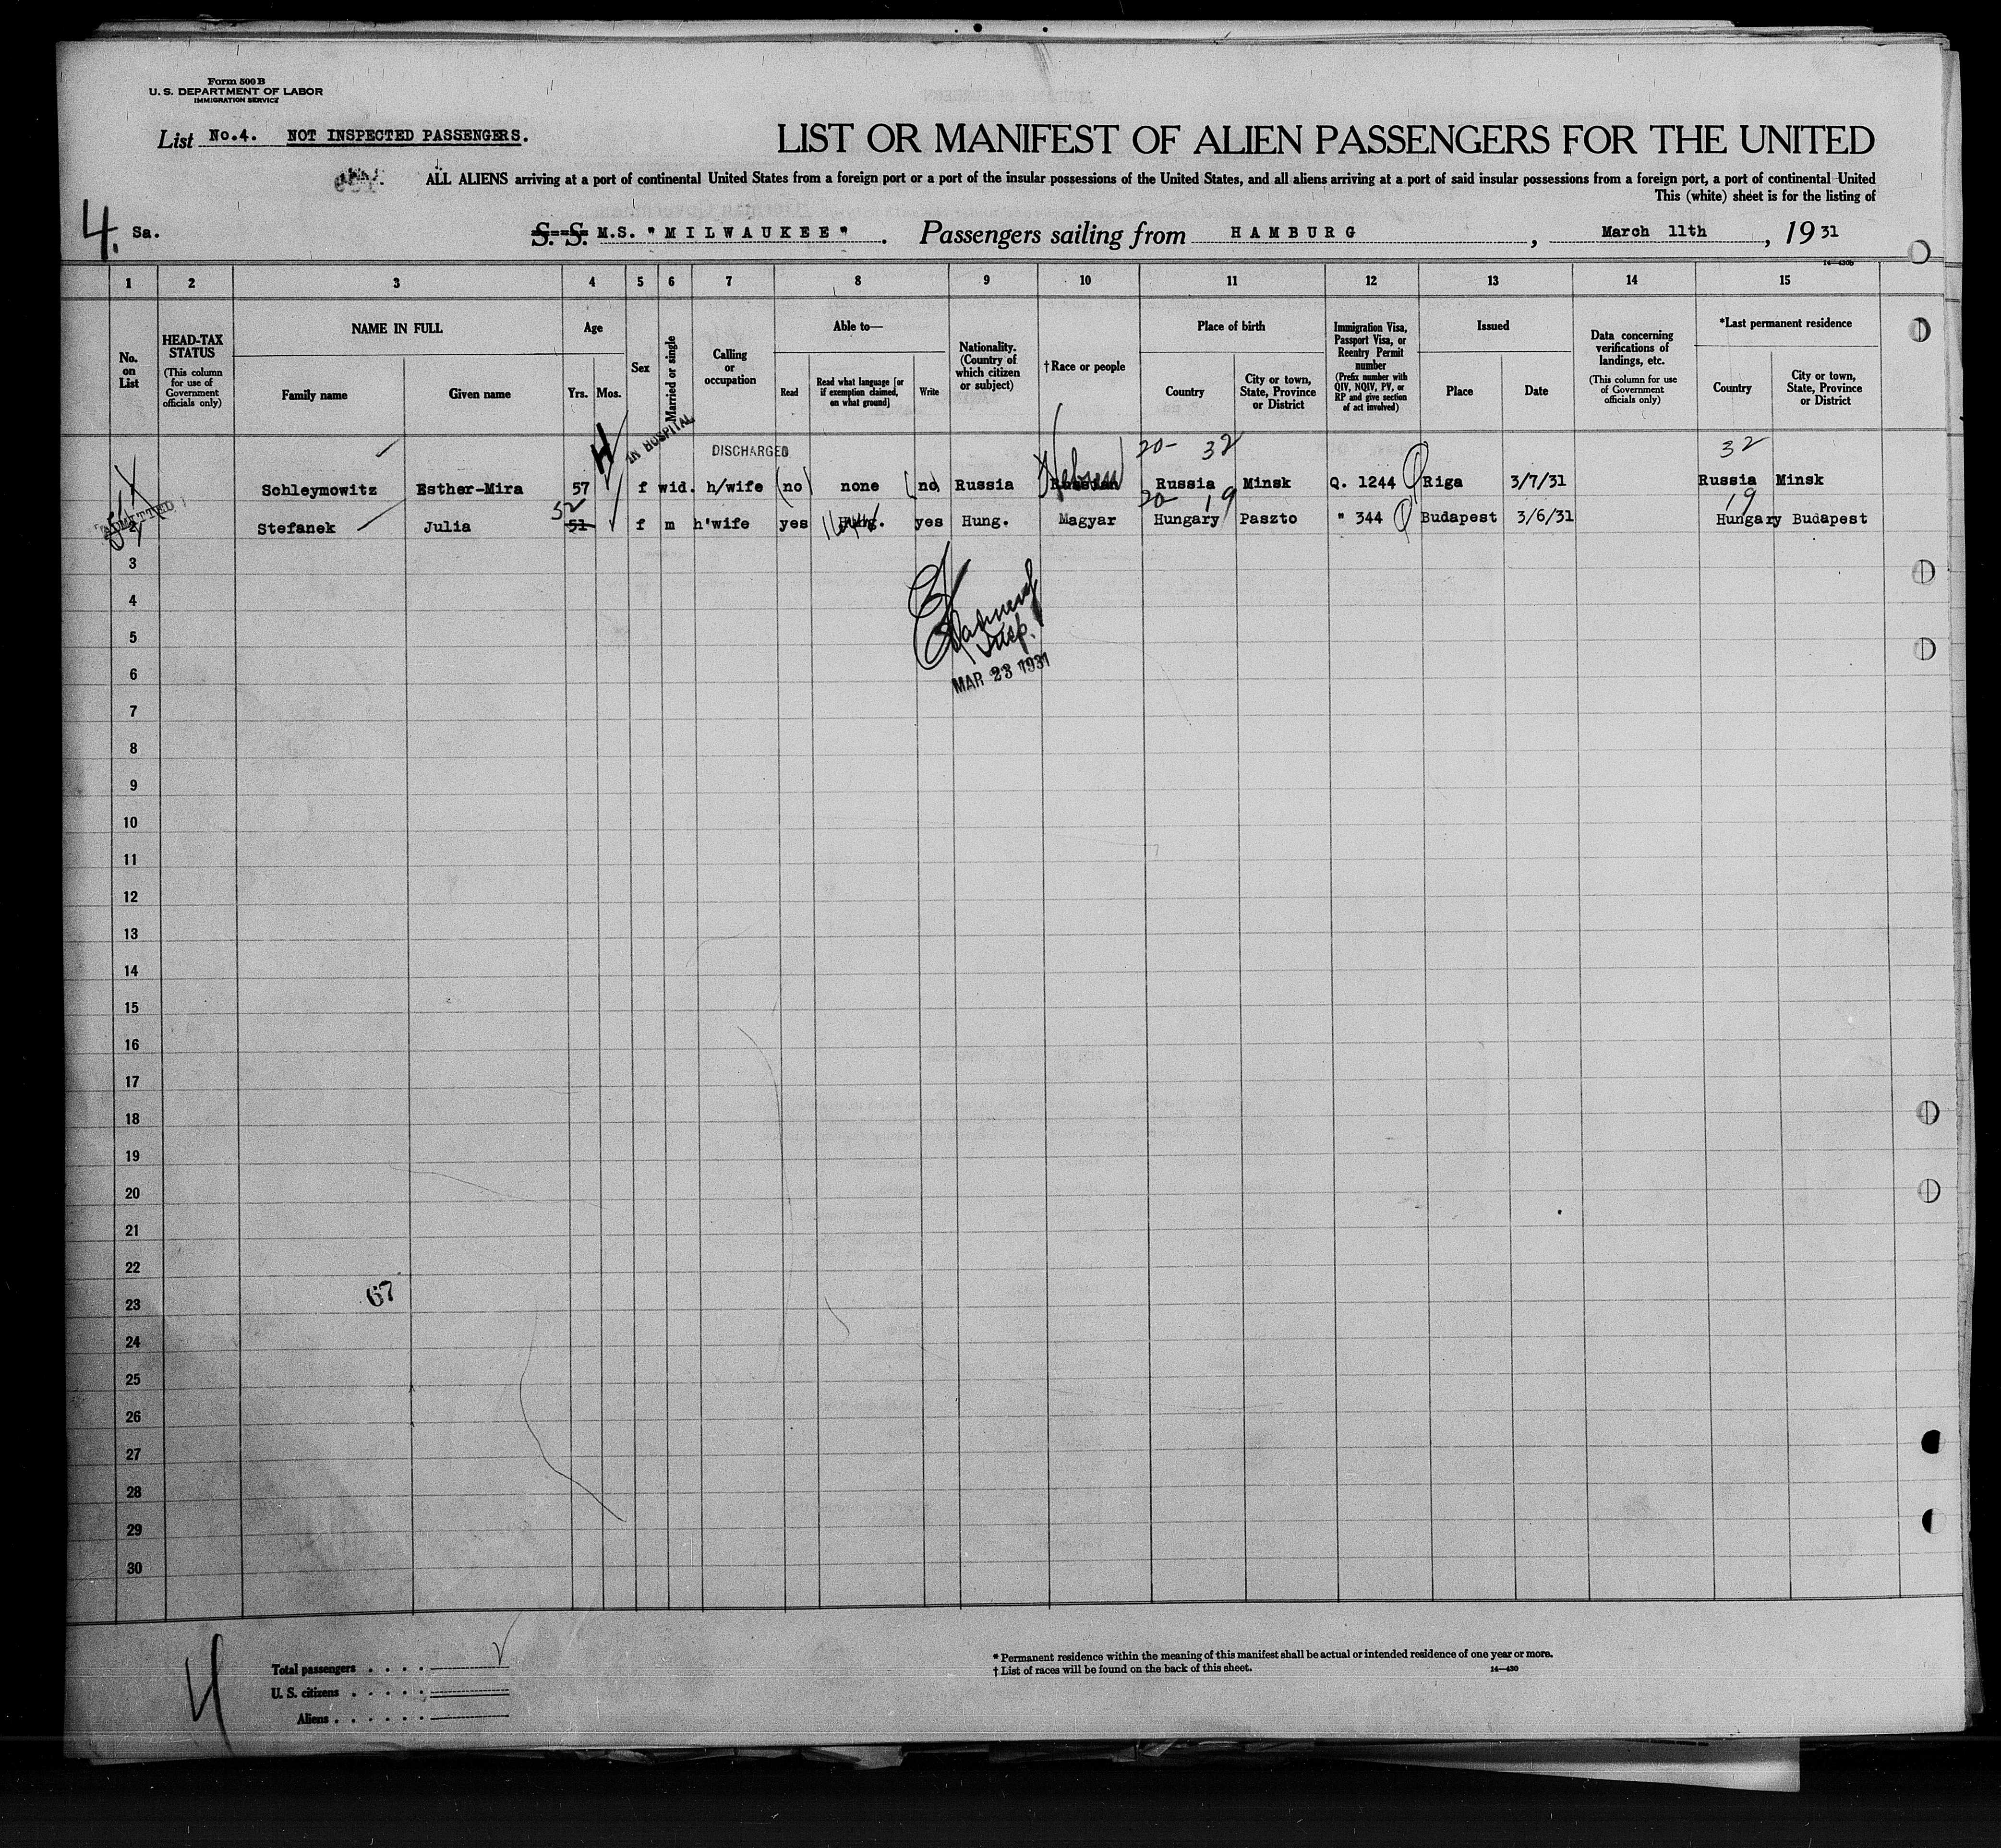 Form 500 B
U. S. DEPARTMENT OF LABOR
IMMIGRATION SERVICE
List No.4. NOT INSPECTED PASSENGERS.
LIST OR MANIFEST OF ALIEN PASSENGERS FOR THE UNITED
ALL ALIENS arriving at a port of continental United States from a foreign port or a port of the insular possessions of the United States, and all aliens arriving at a port of said insular possessions from a foreign port, a port of continental United
This (white) sheet is for the listing of
4. Sa.
S. S. M.S. "MILWAUKEE". Passengers sailing from HAMBURG, March 11th, 19 31
14—430b
1 2 3 4 5 6 7 8 9 10 11 12 13 14 15
No. on List
HEAD-TAX STATUS
(This column for use of Government officials only)
NAME IN FULL
Family name
Given name
Age
Yrs.
Mos.
Sex
Married or single
Calling or occupation
Able to—
Read
Read what language [or if exemption claimed, on what ground]
Write
Nationality. (Country of which citizen or subject)
†Race or people
Place of birth
Country
City or town, State, Province or District
Immigration Visa, Passport Visa, or Reentry Permit number
(Prefix number with QIV, NQIV, PV, or RP and give section of act involved)
Issued
Place
Date
Data concerning verifications of landings, etc.
(This column for use of Government officials only)
*Last permanent residence
Country
City or town, State, Province or District
H IN HOSPITAL DISCHARGED 20- 32 32
Schleymowitz Esther-Mira 57 f wid. h/wife (no) none (no) Russia Hebrew Russian Russia Minsk Q. 1244 Riga 3/7/31 Russia Minsk
ADMITTED 52 20- 19 19
Stefanek Julia 51 f m h'wife yes Hung. yes Hung. Magyar Hungary Paszto " 344 Budapest 3/6/31 Hungary Budapest
3
4
Insp.
5
6
MAR 23 1931
7
8
9
10
11
12
13
14
15
16
17
18
19
20
21
22
67
23
24
25
26
27
28
29
30
4
Total passengers
U. S. citizens
Aliens
* Permanent residence within the meaning of this manifest shall be actual or intended residence of one year or more.
† List of races will be found on the back of this sheet. 14—430